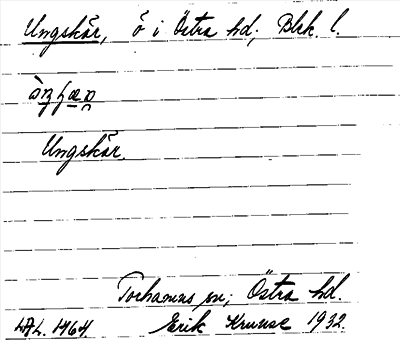 Ungskär, ö i Östra hd, Blek. l.
Ungskär.
Torhamns sn; Östra hd.
Erik Kruuse 1932.